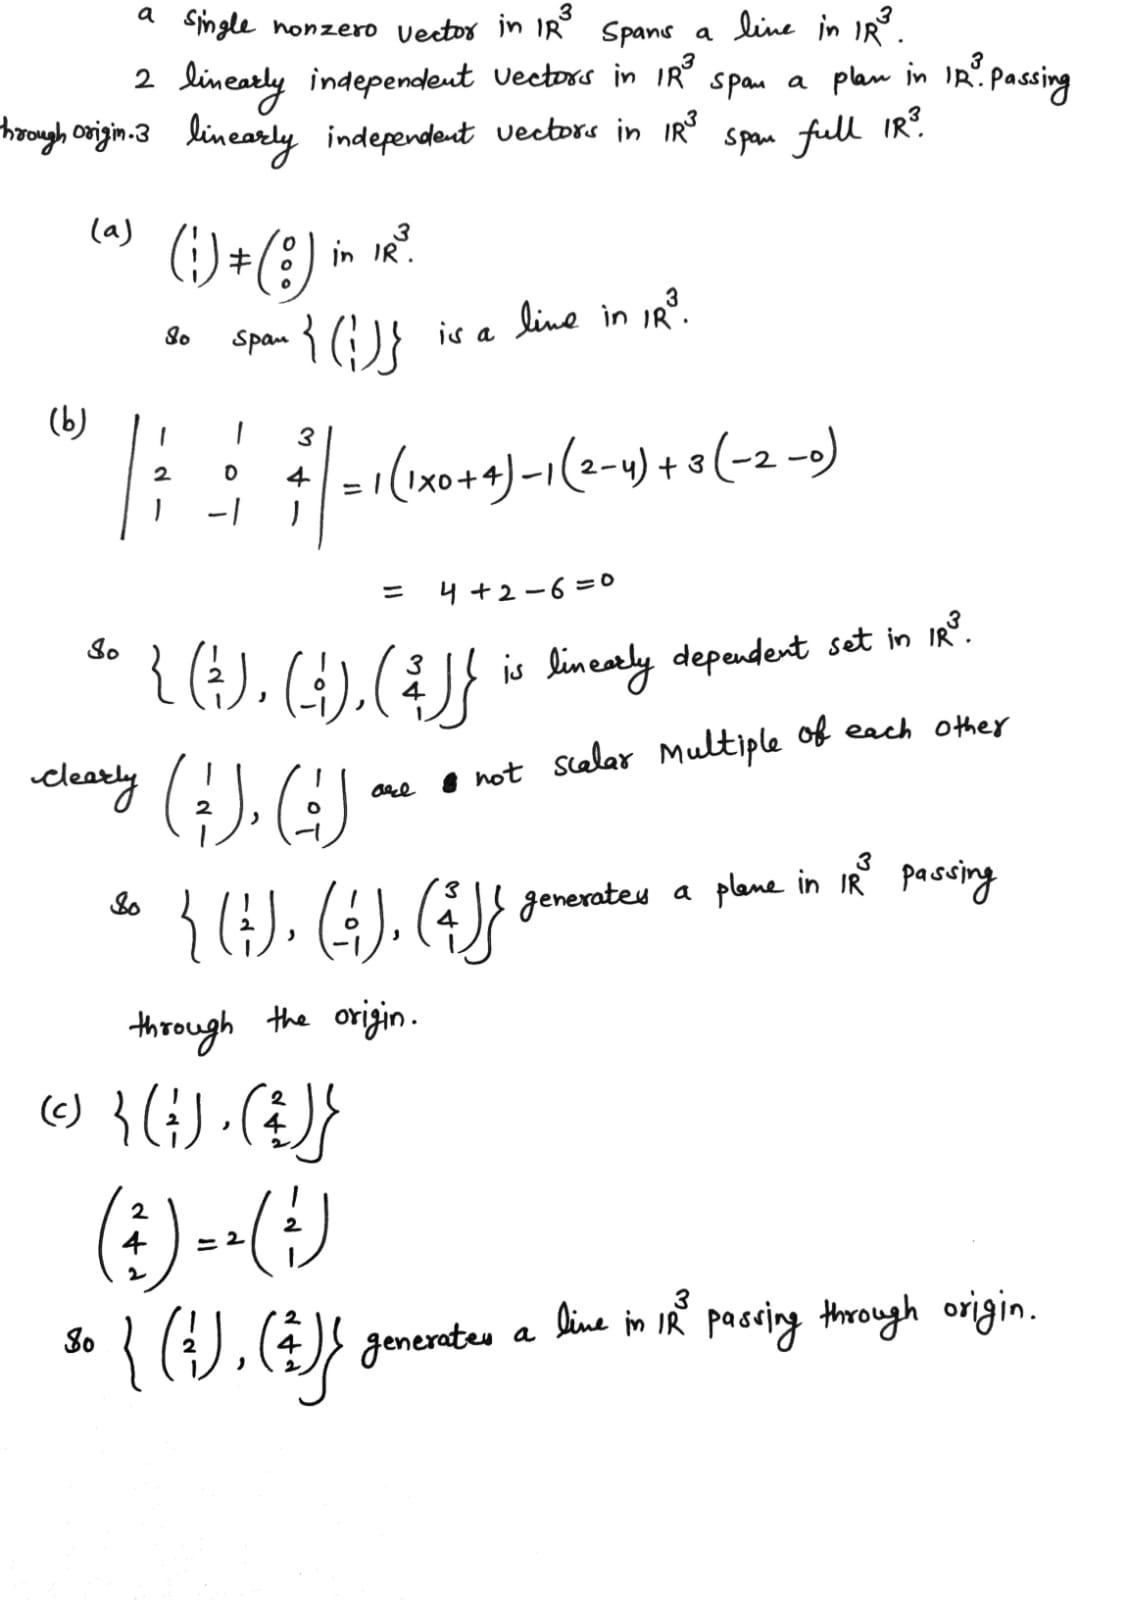 a single nonzero vector in IR³ spans a line in IR³.
2 linearly independent vectors in IR³ span a plan in IR³. passing
hrough origin. 3 linearly independent vectors in IR³ span full IR³.
(a) (1 1 1) ≠ (0 0 0) in IR³.
So span {(1 1 1)} is a line in IR³.
(b) | 1 1 3 |
| 2 0 4 | = 1(1x0+4) - 1(2-4) + 3(-2-0)
| 1 -1 1 |
= 4+2-6=0
So {(1 2 1), (1 0 -1), (3 4 1)} is linearly dependent set in IR³.
clearly (1 2 1), (1 0 -1) are not scalar Multiple of each other
So {(1 2 1), (1 0 -1), (3 4 1)} generates a plane in IR³ passing
through the origin.
(c) {(1 2 1), (2 4 2)}
(2 4 2) = 2(1 2 1)
So {(1 2 1), (2 4 2)} generates a line in IR³ passing through origin.